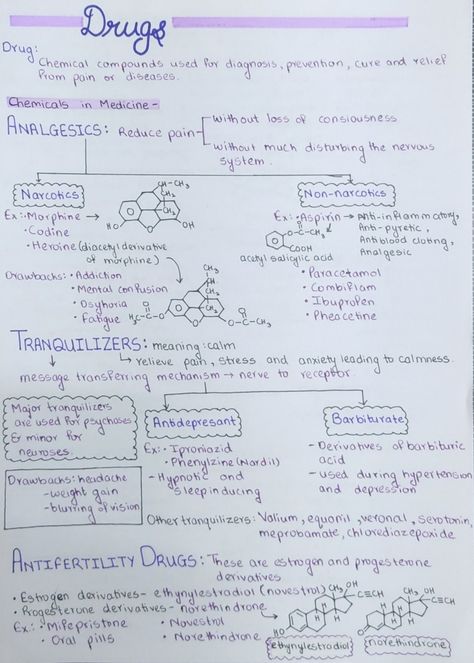 Drugs
Drug:
Chemical compounds used for diagnosis, prevention, cure and relief
from pain or diseases.
Chemicals in Medicine -
ANALGESICS: Reduce pain
without loss of consiousness
without much disturbing the nervous
system.
Narcotics
Ex:• Morphine →
• Codine
• Heroine (diacetyl derivative
of morphine)
Drawbacks: • Addiction
• Mental confusion
• Osyhoria
• Fatigue
CH-CH₃
CH₂
CH₂
HO
O
OH
CH-CH₃
CH₂
CH₂
H₃C-C-O
O
O
O-C-CH₃
O
Non-narcotics
Ex:• Aspirin → Anti-inflammatory,
Anti-pyretic,
Antiblood cloting,
Analgesic
O
O-C-CH₃
COOH
acetyl salicylic acid
• Paracetamol
• Combiflam
• Ibuprofen
• Pheacetine
TRANQUILIZERS: meaning: calm
relieve pain, stress and anxiety leading to calmness.
message transferring mechanism → nerve to receptor.
Major tranquilizers
are used for psychoses
& minor for
neuroses.
Drawbacks: headache
- weight gain
- blurring of vision
Antidepresant
Ex: • Iproniazid
• Phenylzine (Nardil)
- Hypnotic and
sleep inducing
Barbiturate
- Derivatives of barbituric
acid
- used during hypertension
and depression
Other tranquilizers: Valium, equanil, veronal, serotonin,
meprobamate, chlorediazepoxide
ANTIFERTILITY DRUGS: These are estrogen and progesterone
derivatives
• Estrogen derivatives - ethynylestradiol (novestrol)
• Progesterone derivatives - norethindrone
Ex: • Mifepristone
• Oral pills
• Novestrol
• Norethindrone
CH₃ OH
C≡CH
H
H
H
HO
ethynylestradiol
CH₃ OH
C≡CH
H
H
H
H
O
norethindrone